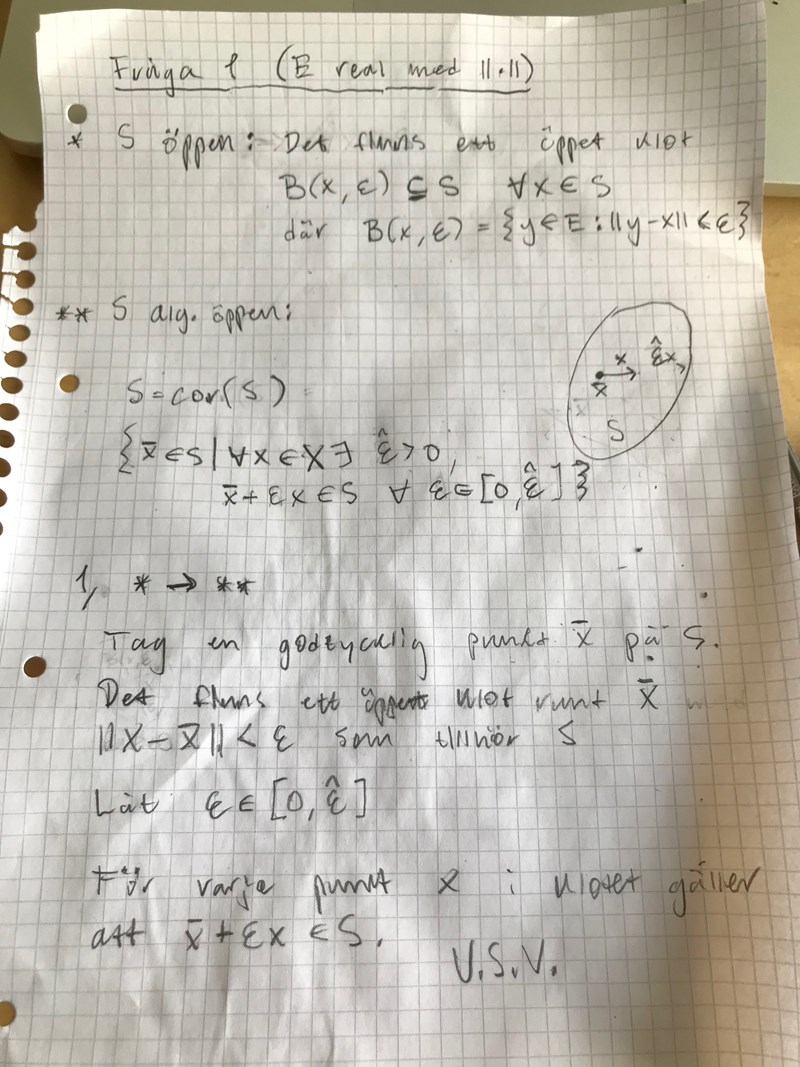 Fråga 1 (E real med ||·||)
* S öppen: Det finns ett öppet klot
B(x, ε) ⊆ S ∀x ∈ S
där B(x, ε) = {y ∈ E : ||y - x|| < ε}
** S alg. öppen:
x ε̂x
x̄
S
S = cor(S)
{x̄ ∈ S | ∀x ∈ X ∃ ε̂ > 0,
x̄ + εx ∈ S ∀ ε ∈ [0, ε̂]}
1, * → **
Tag en godtycklig punkt x̄ på S.
Det finns ett öppet klot runt x̄
||x - x̄|| < ε som tillhör S
Låt ε ∈ [0, ε̂]
För varje punkt x i klotet gäller
att x̄ + εx ∈ S.
V.S.V.